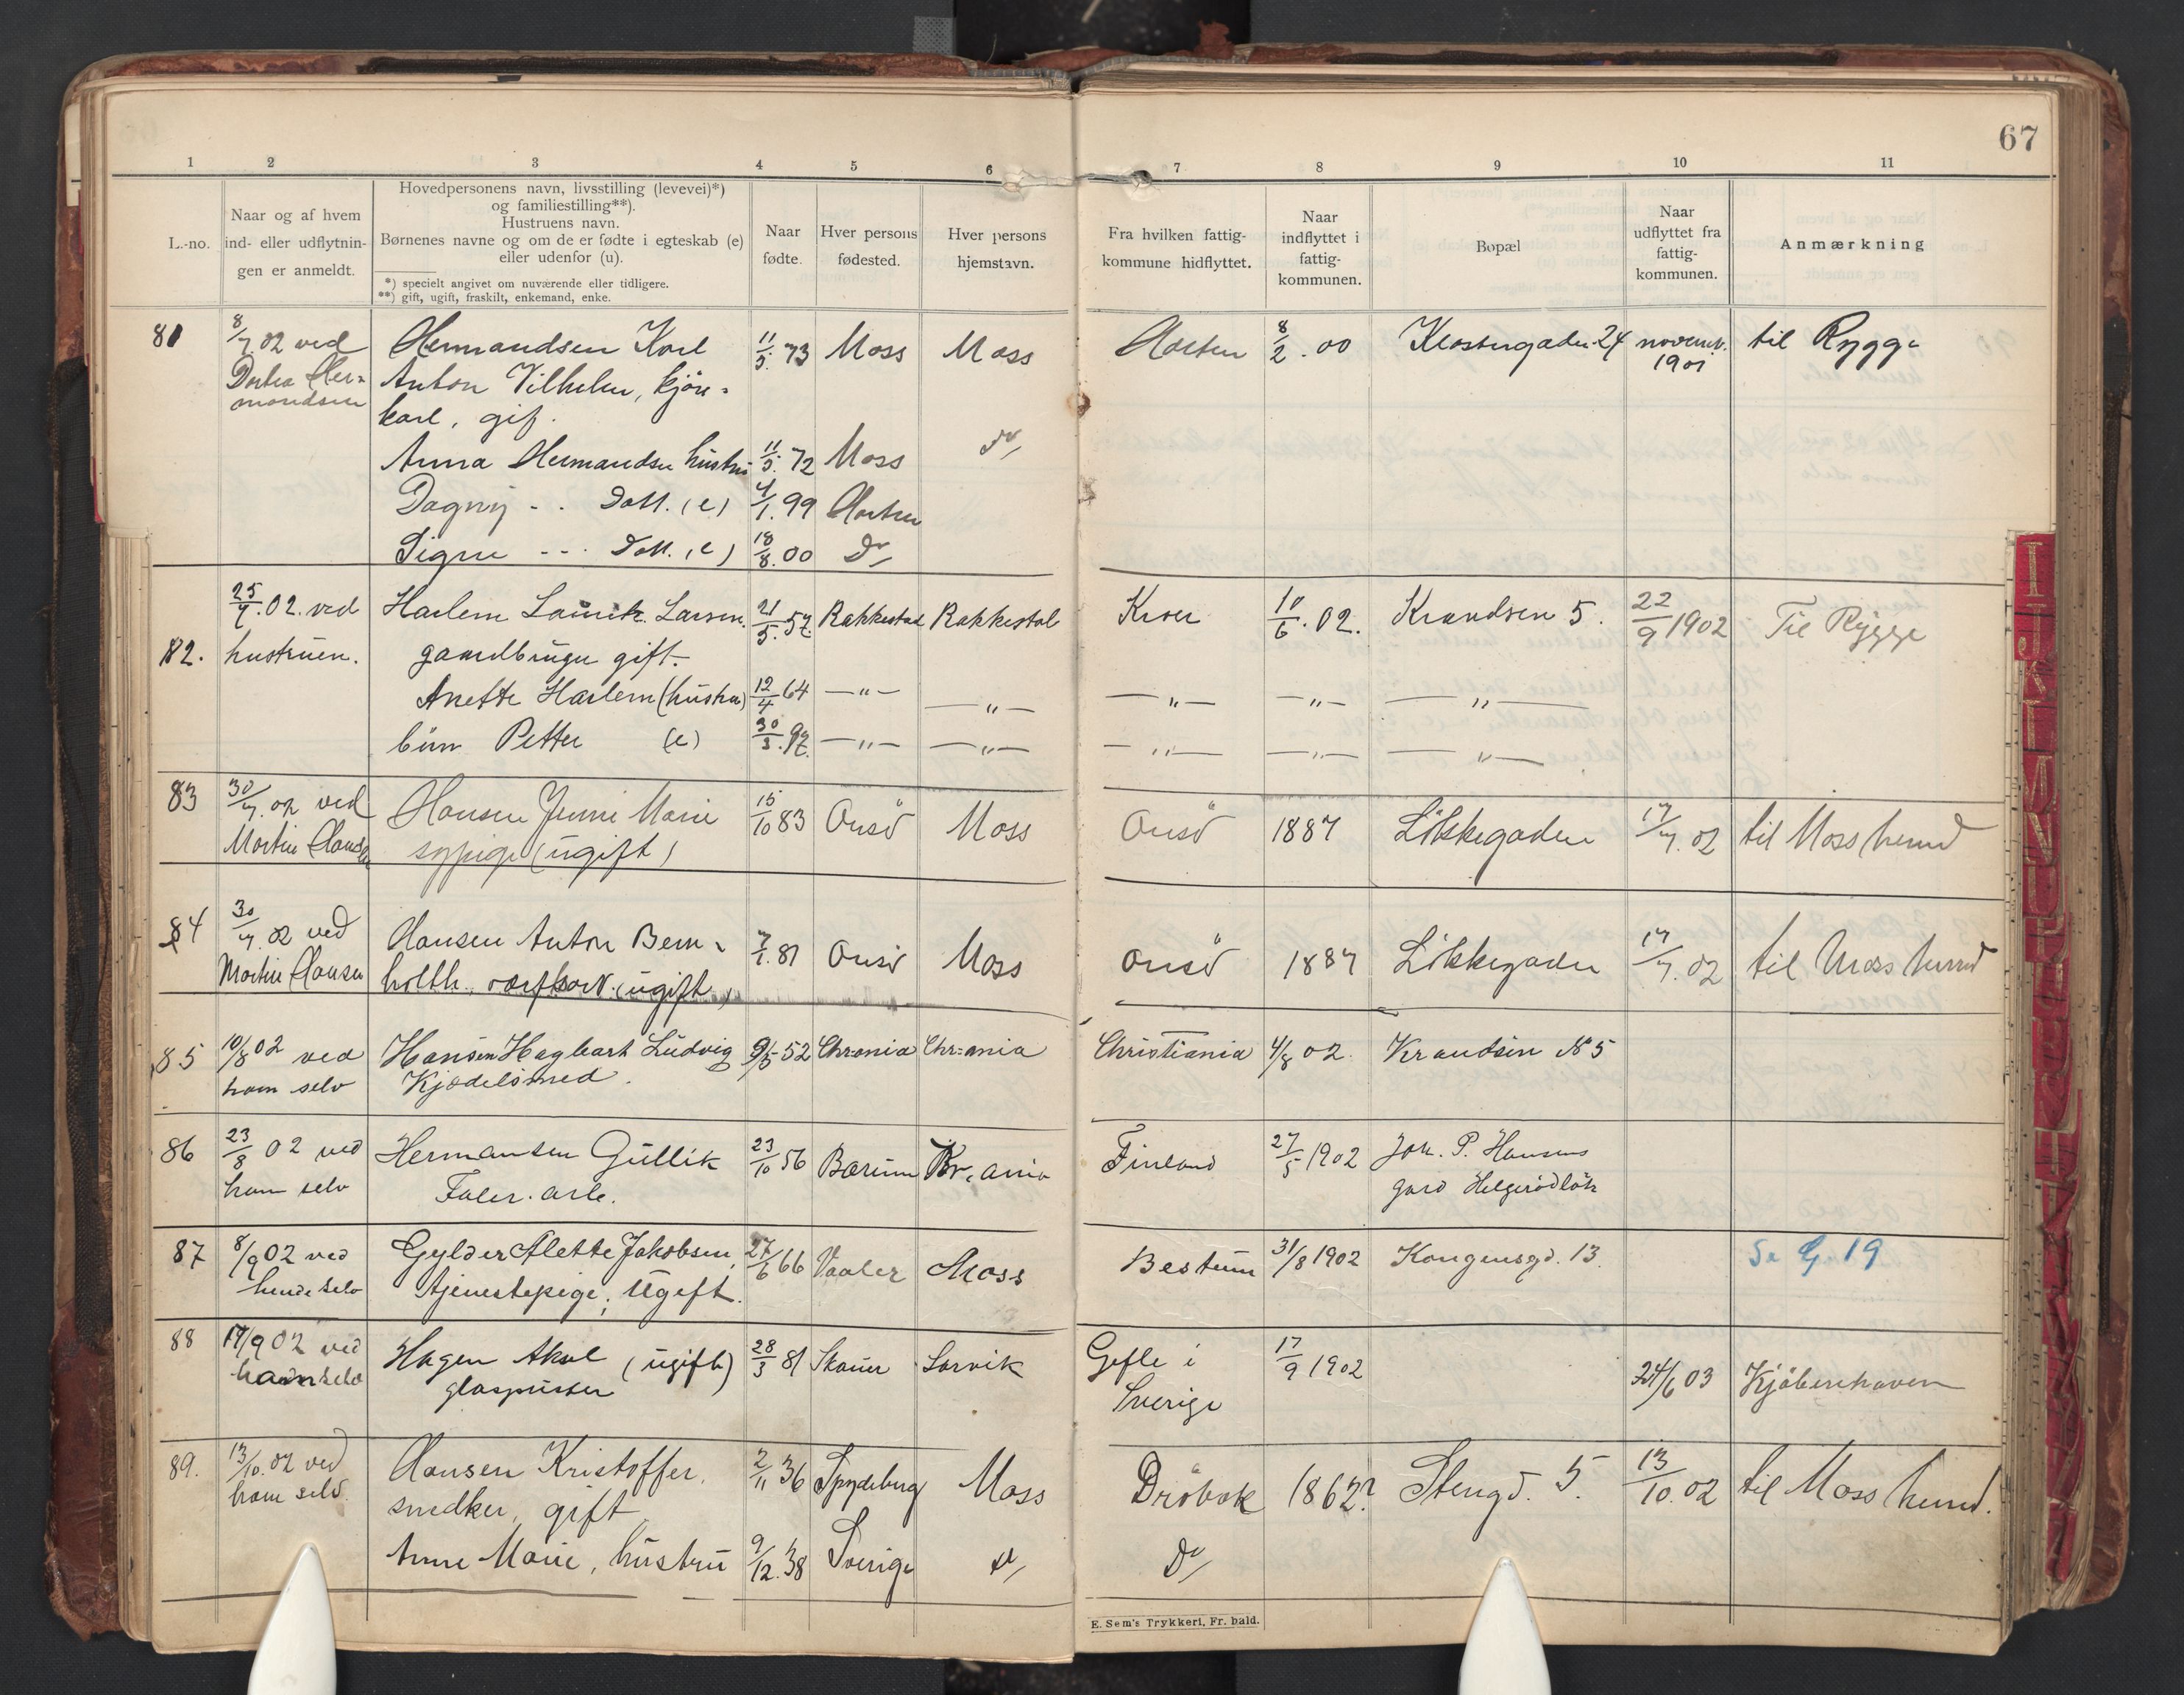 67
1 2 3 4 5 6 7 8 9 10 11
L.-no.
Naar og af hvem
ind- eller udflytnin-
gen er anmeldt.
Hovedpersonens navn, livsstilling (levevei)*)
og familiestilling**).
Hustruens navn.
Børnenes navne og om de er fødte i egteskab (e)
eller udenfor (u).
*) specielt angivet om nuværende eller tidligere.
**) gift, ugift, fraskilt, enkemand, enke.
Naar
fødte.
Hver persons
fødested.
Hver persons
hjemstavn.
Fra hvilken fattig-
kommune hidflyttet.
Naar
indflyttet i
fattig-
kommunen.
Bopæl
Naar
udflyttet fra
fattig-
kommunen.
Anmærkning
81 8/7.02 ved Hermandsen Karl 11/5.73 Moss Moss Horten 8/2.00 Klostergaden 24 novemb. til Rygge
Dortea Her= Anton Vilhelm, kjöre= 1901
mandsen karl, gif.
Anna Hermandsen hustru 11/5.72 Moss Do
Dagny - - Datt. (e) 4/1.99 Horten
Signe - - - Datt. (e) 18/8.00 Do
25/7.02. ved Harlem Laurits Larsen. 21/5.57. Rakkestad Rakkestad Kroer 10/6.02. Krandsen 5. 22/9 1902 Til Rygge
82. hustruen. gaardbruger gift.
Anette Harlem (hustru) 12/4 64 —"— —"— —"— —"— —"—
barn Petter (e) 30/3.97. —"— —"— —"— —"— —"—
83 30/7.02 ved Hansen Jenni Marie 15/10 83 Onsö Moss Onsö 1887 Lökkegaden 17/7.02 til Moss herred
Martin Hansen sypige (ugift)
84 30/7.02 ved Hansen Anton Bern= 7/1.81 Onsö Moss Onsö 1887 Lökkegaden 17/7.02 til Moss herred
Martin Hansen holth. (ugift)
85 10/8 02 ved Hansen Hagbart Ludvig 9/5 52 Chr=ania Chr=ania Christiania 4/8 02. Krandsen № 5
ham selv Kjedelsmed.
86 23/8 02 ved Hermansen Gullik 23/10 56 Bærum Kr.ania Finland 27/5 1902 Joh. P. Hansens
ham selv Faler. arb. gard Helgerödlök
87 8/9 02 ved Gylder Alette Jakobsen, 27/6 66 Vaaler Moss Bestum 31/8 1902 Kongensgd. 13. Se G. 19
hende selv tjenestepige; Ugift.
88 17/9 02 ved Hagen Aksel (ugift) 28/3 81 Skauer Larvik Gefle i 17/9 1902 24/6 03 Kjöbenhaven
ham selv glaspudser Sverige
89. 13/10.02 ved Hansen Kristoffer, 2/11 36 Spydeberg Moss Dröbak 1862? Stengd. 5. 13/10.02 til Moss herred.
ham selv. snedker, gift
Anne Marie, hustru 9/12.38 Sverige Do Do
E. Sem's Trykkeri, Fr. hald.